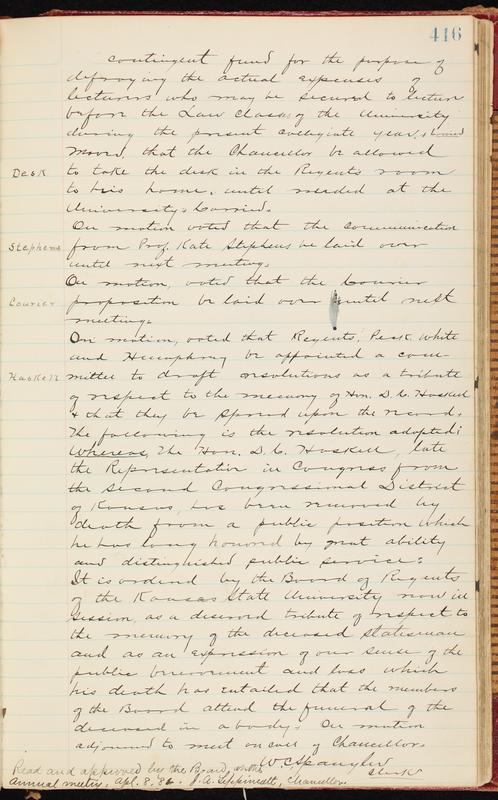 416
contingent fund for the purpose of
defraying the actual expenses of
lecturers who may be secured to lecture
before the Law Class of the University
during the present collegiate year, carried
Moved, that the Chancellor be allowed
Desk to take the desk in the Regents room
to his home, until needed at the
University, carried.
On motion voted that the communication
Stephens from Prof. Kate Stephens be laid over
until next meeting.
On motion, voted that the Courier
Courier proposition be laid over until next
meeting.
On motion, voted that Regents, Peck, White
and Humphrey be appointed a com-
Haskell mittee to draft resolutions as a tribute
of respect to the memory of Hon. D. C. Haskell
& that they be spread upon the record.
The following is the resolution adopted:
Whereas, The Hon. D. C. Haskell, late
the Representative in Congress from
the Second Congressional District
of Kansas, has been removed by
death from a public position which
he has long honored by great ability
and distinguished public service:
It is ordered by the Board of Regents
of the Kansas State University now in
session, as a deserved tribute of respect to
the memory of the deceased statesman
and as an expression of our sense of the
public bereavement and loss which
his death has entailed that the members
of the Board attend the funeral of the
deceased in a body. On motion
adjourned to meet on call of Chancellor.
W C Spangler
Clerk
Read and approved by the Board, at the
annual meeting, Apl. 8, J. A. Lippincott, Chancellor.